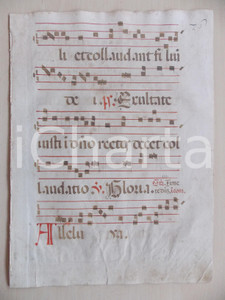 li et collaudant fi lii
de i. ps. Exultate
iusti i dno rectos decet col
laudatio ℣. Gloria.
Allelu ya.
iCharta